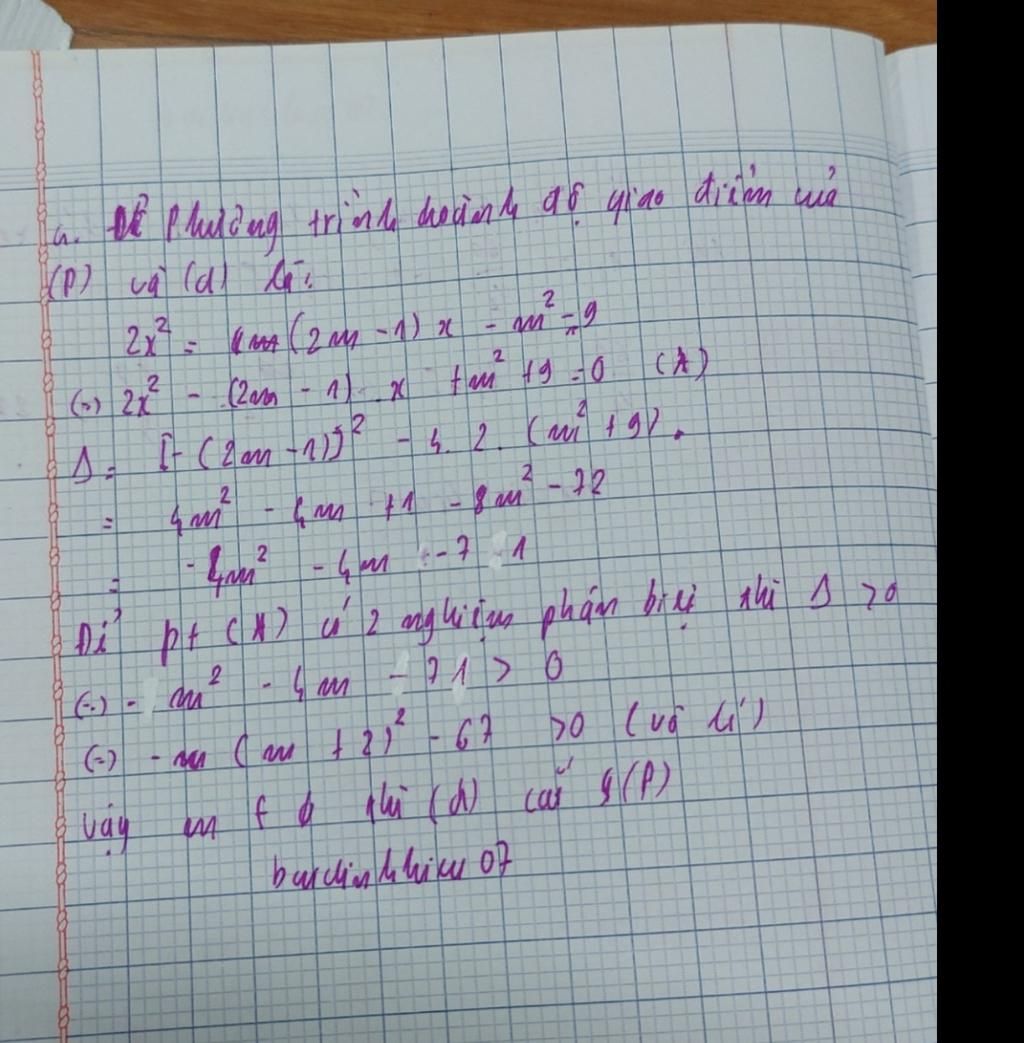 a. Phương trình hoành độ giao điểm của
(P) và (d) là:
2x² = (2m - 1) x - m² - 9
(=) 2x² - (2m - 1) . x + m² + 9 = 0 (*)
Δ = [- (2m - 1)]² - 4. 2. (m² + 9).
= 4m² - 4m + 1 - 8m² - 72
= - 4m² - 4m - 71
Để pt (*) có 2 nghiệm phân biệt thì Δ > 0
(=) - m² - 4m - 71 > 0
(=) - (m + 2)² - 67 > 0 (vô lí)
Vậy m ∈ ϕ thì (d) cắt (P)
buidinhhieu 07